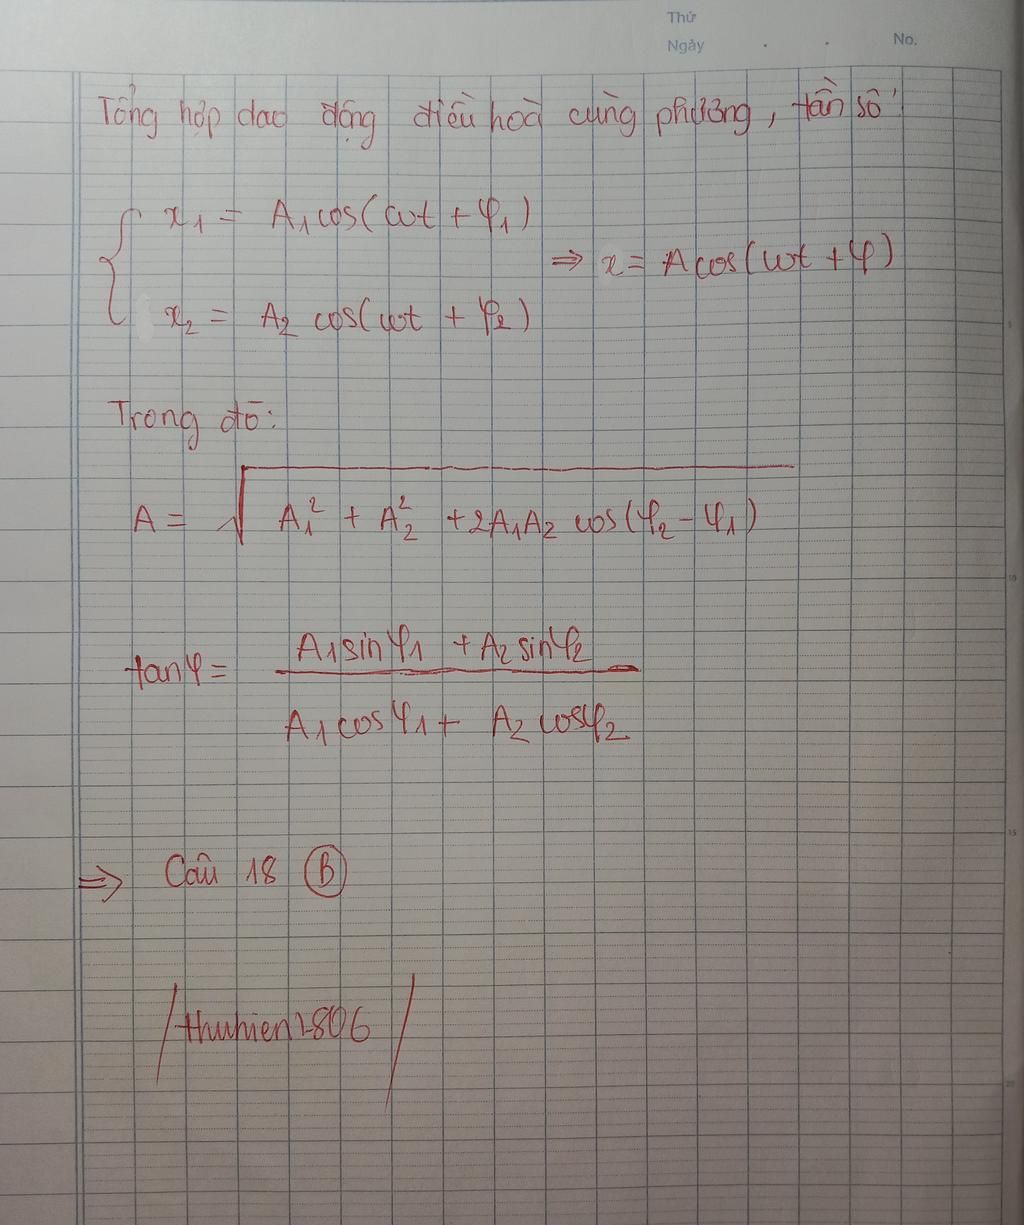 Thứ
Ngày . . No.
Tổng hợp dao động điều hoà cùng phương, tần số
x₁ = A₁cos(ωt + φ₁)
⇒ x = Acos(ωt + φ)
x₂ = A₂ cos(ωt + φ₂)
Trong đó:
A = √(A₁² + A₂² + 2A₁A₂ cos(φ₂ - φ₁))
tanφ = (A₁sinφ₁ + A₂sinφ₂) / (A₁cosφ₁ + A₂cosφ₂)
⇒ Câu 18 (B)
/thuhien2806/
5
10
15
20